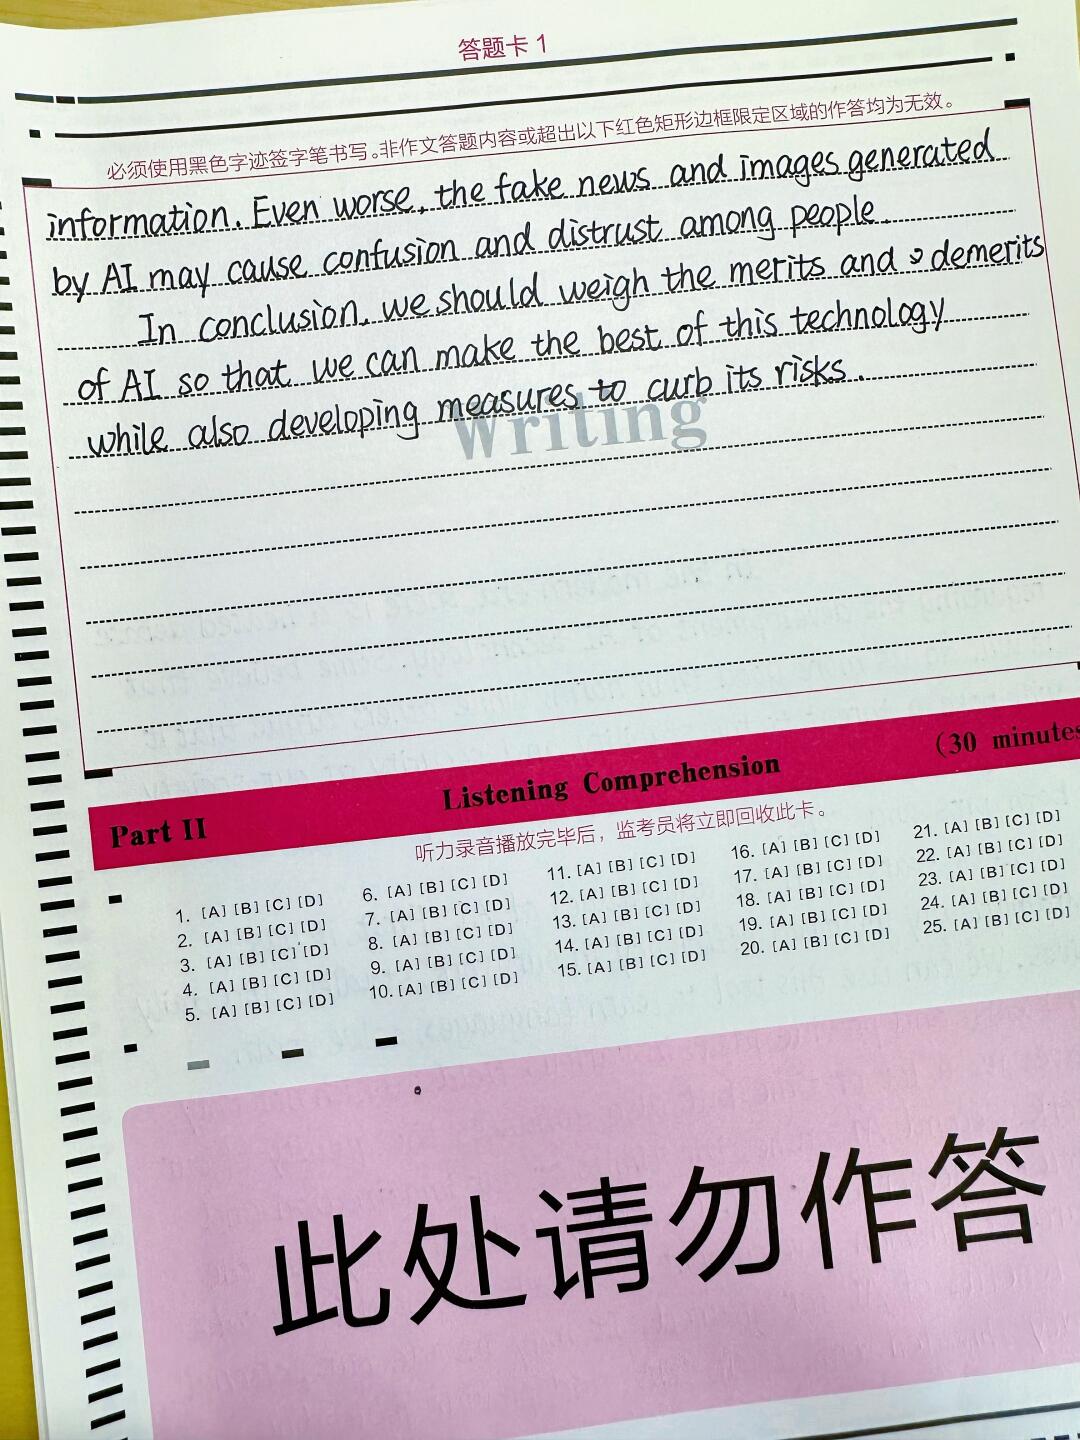 答题卡 1
必须使用黑色字迹签字笔书写。非作文答题内容或超出以下红色矩形边框限定区域的作答均为无效。
information. Even worse, the fake news and images generated
by AI may cause confusion and distrust among people.
In conclusion, we should weigh the merits and demerits
of AI so that we can make the best of this technology
while also developing measures to curb its risks.
Writing
Part II Listening Comprehension (30 minutes
听力录音播放完毕后，监考员将立即回收此卡。
1. [A] [B] [C] [D] 6. [A] [B] [C] [D] 11. [A] [B] [C] [D] 16. [A] [B] [C] [D] 21. [A] [B] [C] [D]
2. [A] [B] [C] [D] 7. [A] [B] [C] [D] 12. [A] [B] [C] [D] 17. [A] [B] [C] [D] 22. [A] [B] [C] [D]
3. [A] [B] [C] [D] 8. [A] [B] [C] [D] 13. [A] [B] [C] [D] 18. [A] [B] [C] [D] 23. [A] [B] [C] [D]
4. [A] [B] [C] [D] 9. [A] [B] [C] [D] 14. [A] [B] [C] [D] 19. [A] [B] [C] [D] 24. [A] [B] [C] [D]
5. [A] [B] [C] [D] 10. [A] [B] [C] [D] 15. [A] [B] [C] [D] 20. [A] [B] [C] [D] 25. [A] [B] [C] [D]
此处请勿作答